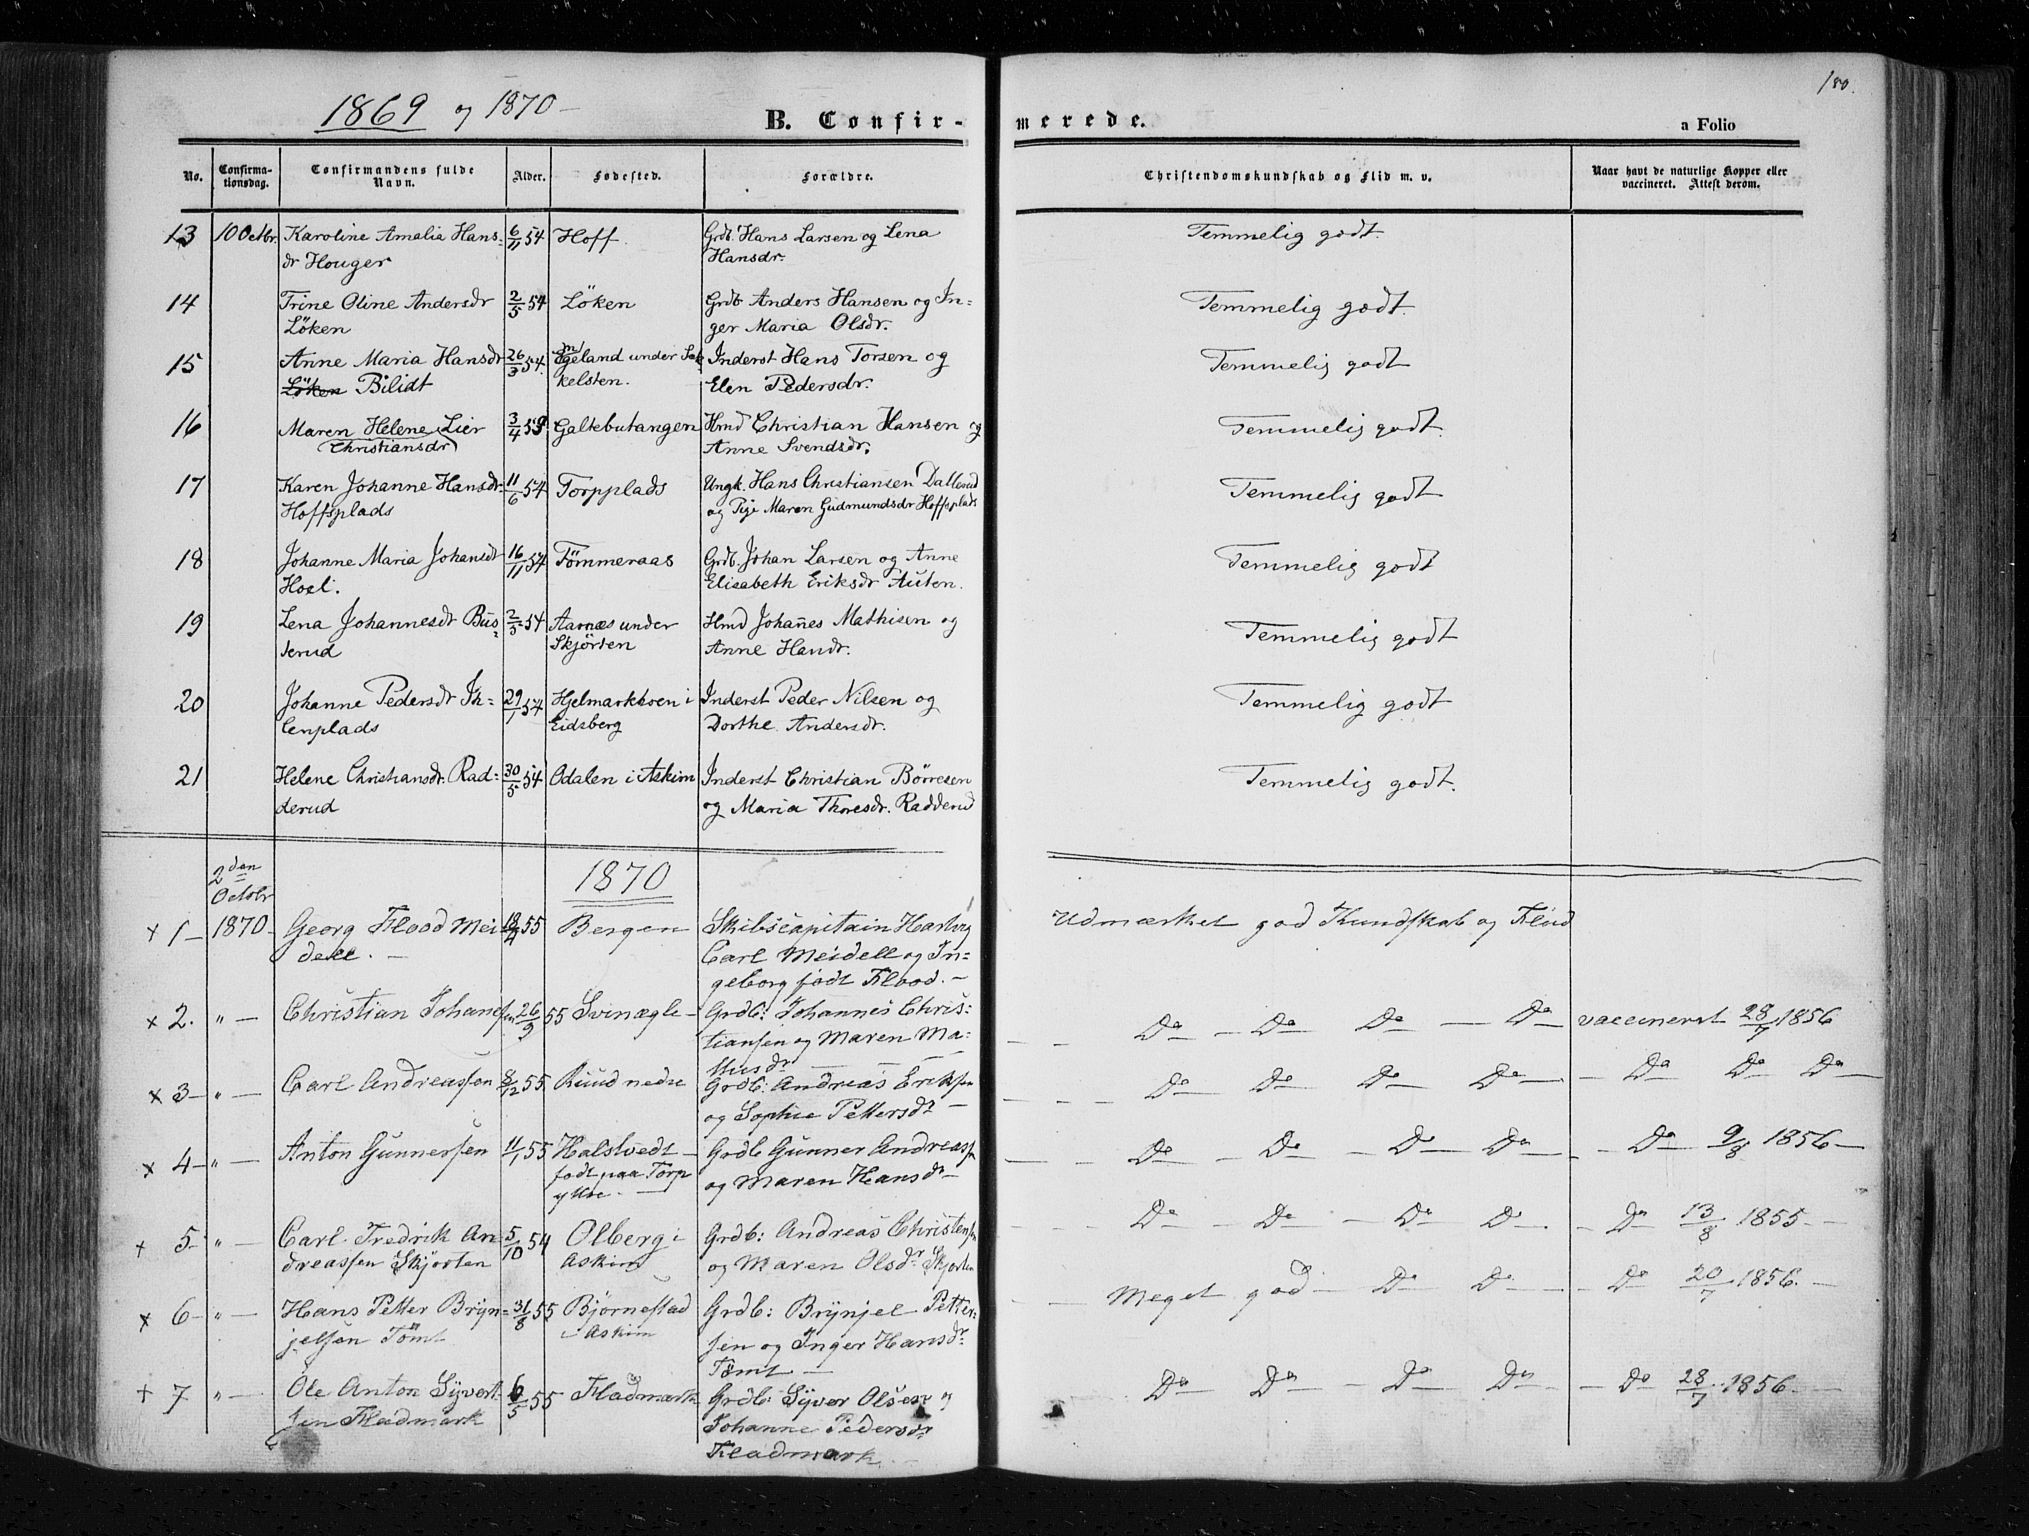 180.
1869 og 1870 -
B. Confir-
merede.
a Folio
No.
Confirma-
tionsdag.
Confirmandens fulde
Navn.
Alder.
Fødested.
Forældre.
Christendomskundskab og Flid m. v.
Naar havt de naturlige Kopper eller
vaccineret. Attest derom.
13 10 Octbr. Karoline Amalia Hans- 6/11 54 Hoff. Grdb. Hans Larsen og Lena Temmelig godt.
dr Houger Hansdr.
14 Trine Oline Andersdr 2/5 54 Löken Grdb Anders Hansen og In= Temmelig godt.
Löken ger Maria Olsdr.
15 Anne Maria Hansdr 26/3 54. Egeland under Sek Inderst Hans Torsen og Temmelig godt
Löken Bilidt kelsten. Elen Pedersdr.
16 Maren Helene Lier 3/4 53 Galtebutangen Hmd Christian Hansen og Temmelig godt.
(Christiansdr) Anne Svendsdr.
17 Karen Johanne Hansdr. 11/6 54 Torpplads Ungk. Hans Christiansen Dallerud Temmelig godt
Hoffsplads og Pige Maren Gudmundsdr Hoffsplads
18 Johanne Maria Johansdr 16/11 54 Tömmeraas Grdb. Johan Larsen og Anne Temmelig godt
Hoel. Elisabeth Eriksdr Auten.
19 Lena Johannesdr Bus= 2/5 54 Aarnæs under Hmd Johañes Mathisen og Temmelig godt
terud Skjörten Anne Handr.
20 Johanne Pedersdr Ih= 29/1 54 Hjelmarkboen i Inderst Peder Nilsen og Temmelig godt
lenplads Eidsberg Dorthe Andersdr.
21 Helene Christiansdr. Rad= 30/5 54 Odalen i Askim Inderst Christian Börresen Temmelig godt.
derud og Maria Thoresdr. Radderud
2den
Octobr
1870
x 1 - 1870 - Georg Flood Mei 18/4 55 Bergen Skibscapitain Hartvig Udmærket god Kundskab og Flid
dell. - Carl Meidell og In=
geborg født Flood. -
x 2. " - Christian Johansen 26/9 55 Svinægle - Grdb: Johannes Chris= Do - Do Do - Do vaccineret 28/7 1856
tiansen og Maren Ma=
thisdr
x 3 - " - Carl Andreassen 8/12 55 Ruud nedre Grdb: Andreas Eriksen Do Do Do Do - Do Do Do
og Sophie Pettersdr -
x 4 - " - Anton Gunnersen 11/1 55 Halstvedt - Grdb Gunner Andreassen Do - Do - Do Do - - Do 9/8 1856 -
født paa Torp og Maren Hansdr -
ytre. -
+ 5 - " - Carl Fredrik An 5/10 54 Olberg i Grdb: Andreas Christensen Do - Do - Do Do - Do 13/8 1855 -
dreassen Skjørten Askim og Maren Olsdr Skjørten
x 6 - " - Hans Petter Bryn= 31/8 55 Bjørnestad Grdb: Brynjel Petter- Meget god - Do Do - Do 20/7 1856. -
jelsen Tömt i Askim sen og Inger Hansdr
Tömt -
+ 7 " - Ole Anton Syvert 6/5 55 Fladmark Grdb: Syver Olsen og Do Do - Do Do - Do 28/7 1856. -
sen Fladmark Johanne Pedersdr
Fladmark.